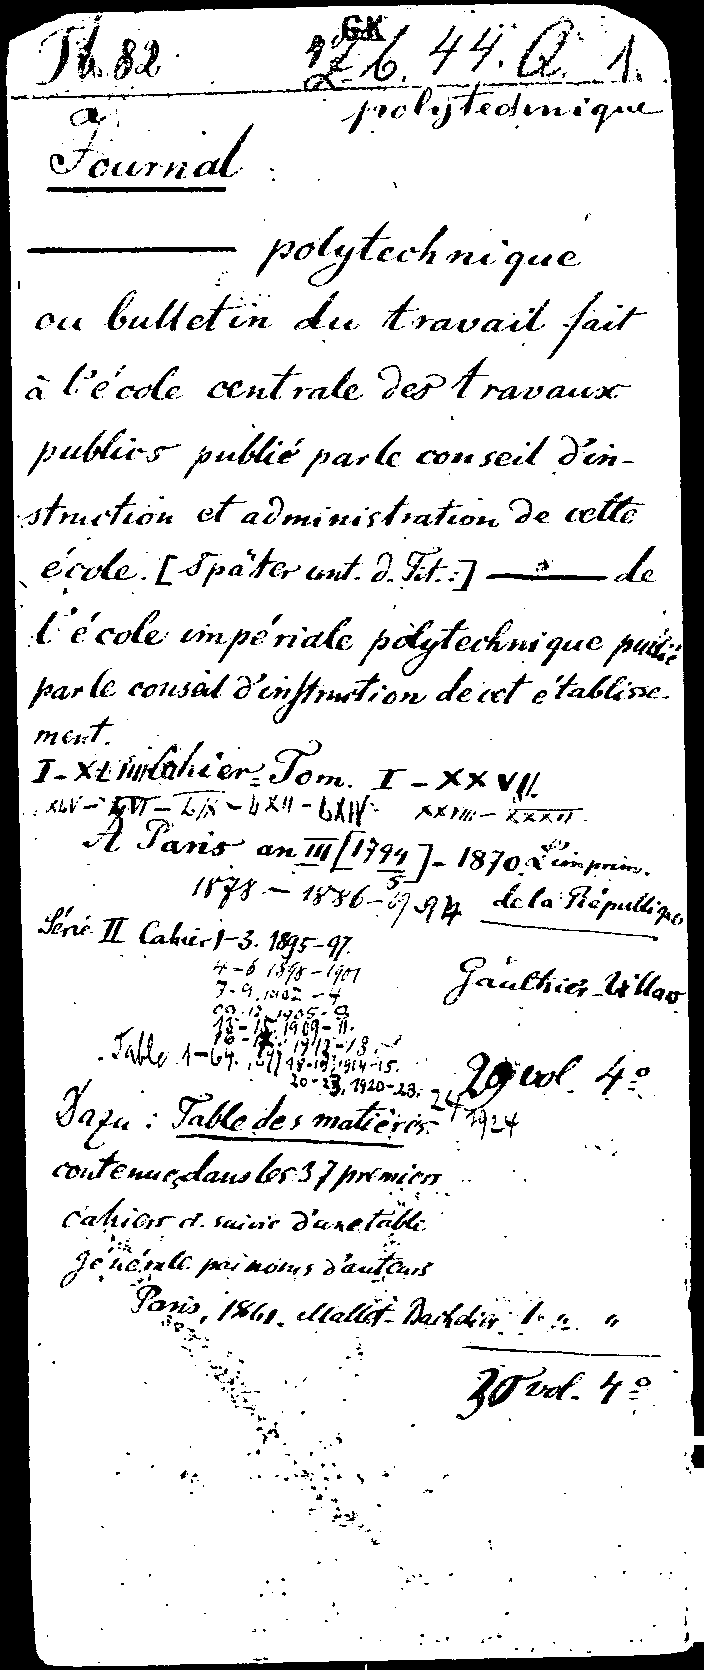 GK
Th. 82 Zb. 44. Q. 1.
polytechnique
a
Journal
——— polytechnique
ou bulletin du travail fait
à l'école centrale des travaux
publics publié par le conseil d'in-
struction et administration de cette
école. [Später unt. d. Tit.:] ——— de
l'école impériale polytechnique publié
par le conseil d'instruction de cet établisse-
ment.
Cahier = Tom. I - XXVII.
XLV - LVI - LIX - LXII - LXIV XXVIII -
À Paris an III [1794] - 1870. L'imprim.
5
1878 - 1886 - 94 de la République
Série II Cahier 1-3. 1895-97.
4-6 1898-1901
Gauthier-Villars
7-9. 1902-4
1913-
Table 1-64. 18-19. 1914-15.
20-23. 1920-23.
24 1924
29 vol. 4º
Dazu: Table des matières
contenues dans les 37 premiers
cahiers et suivie d'une table
générale par noms d'auteurs
Paris, 1861. Mallet-Bachelier 1 „ „
30 vol. 4º